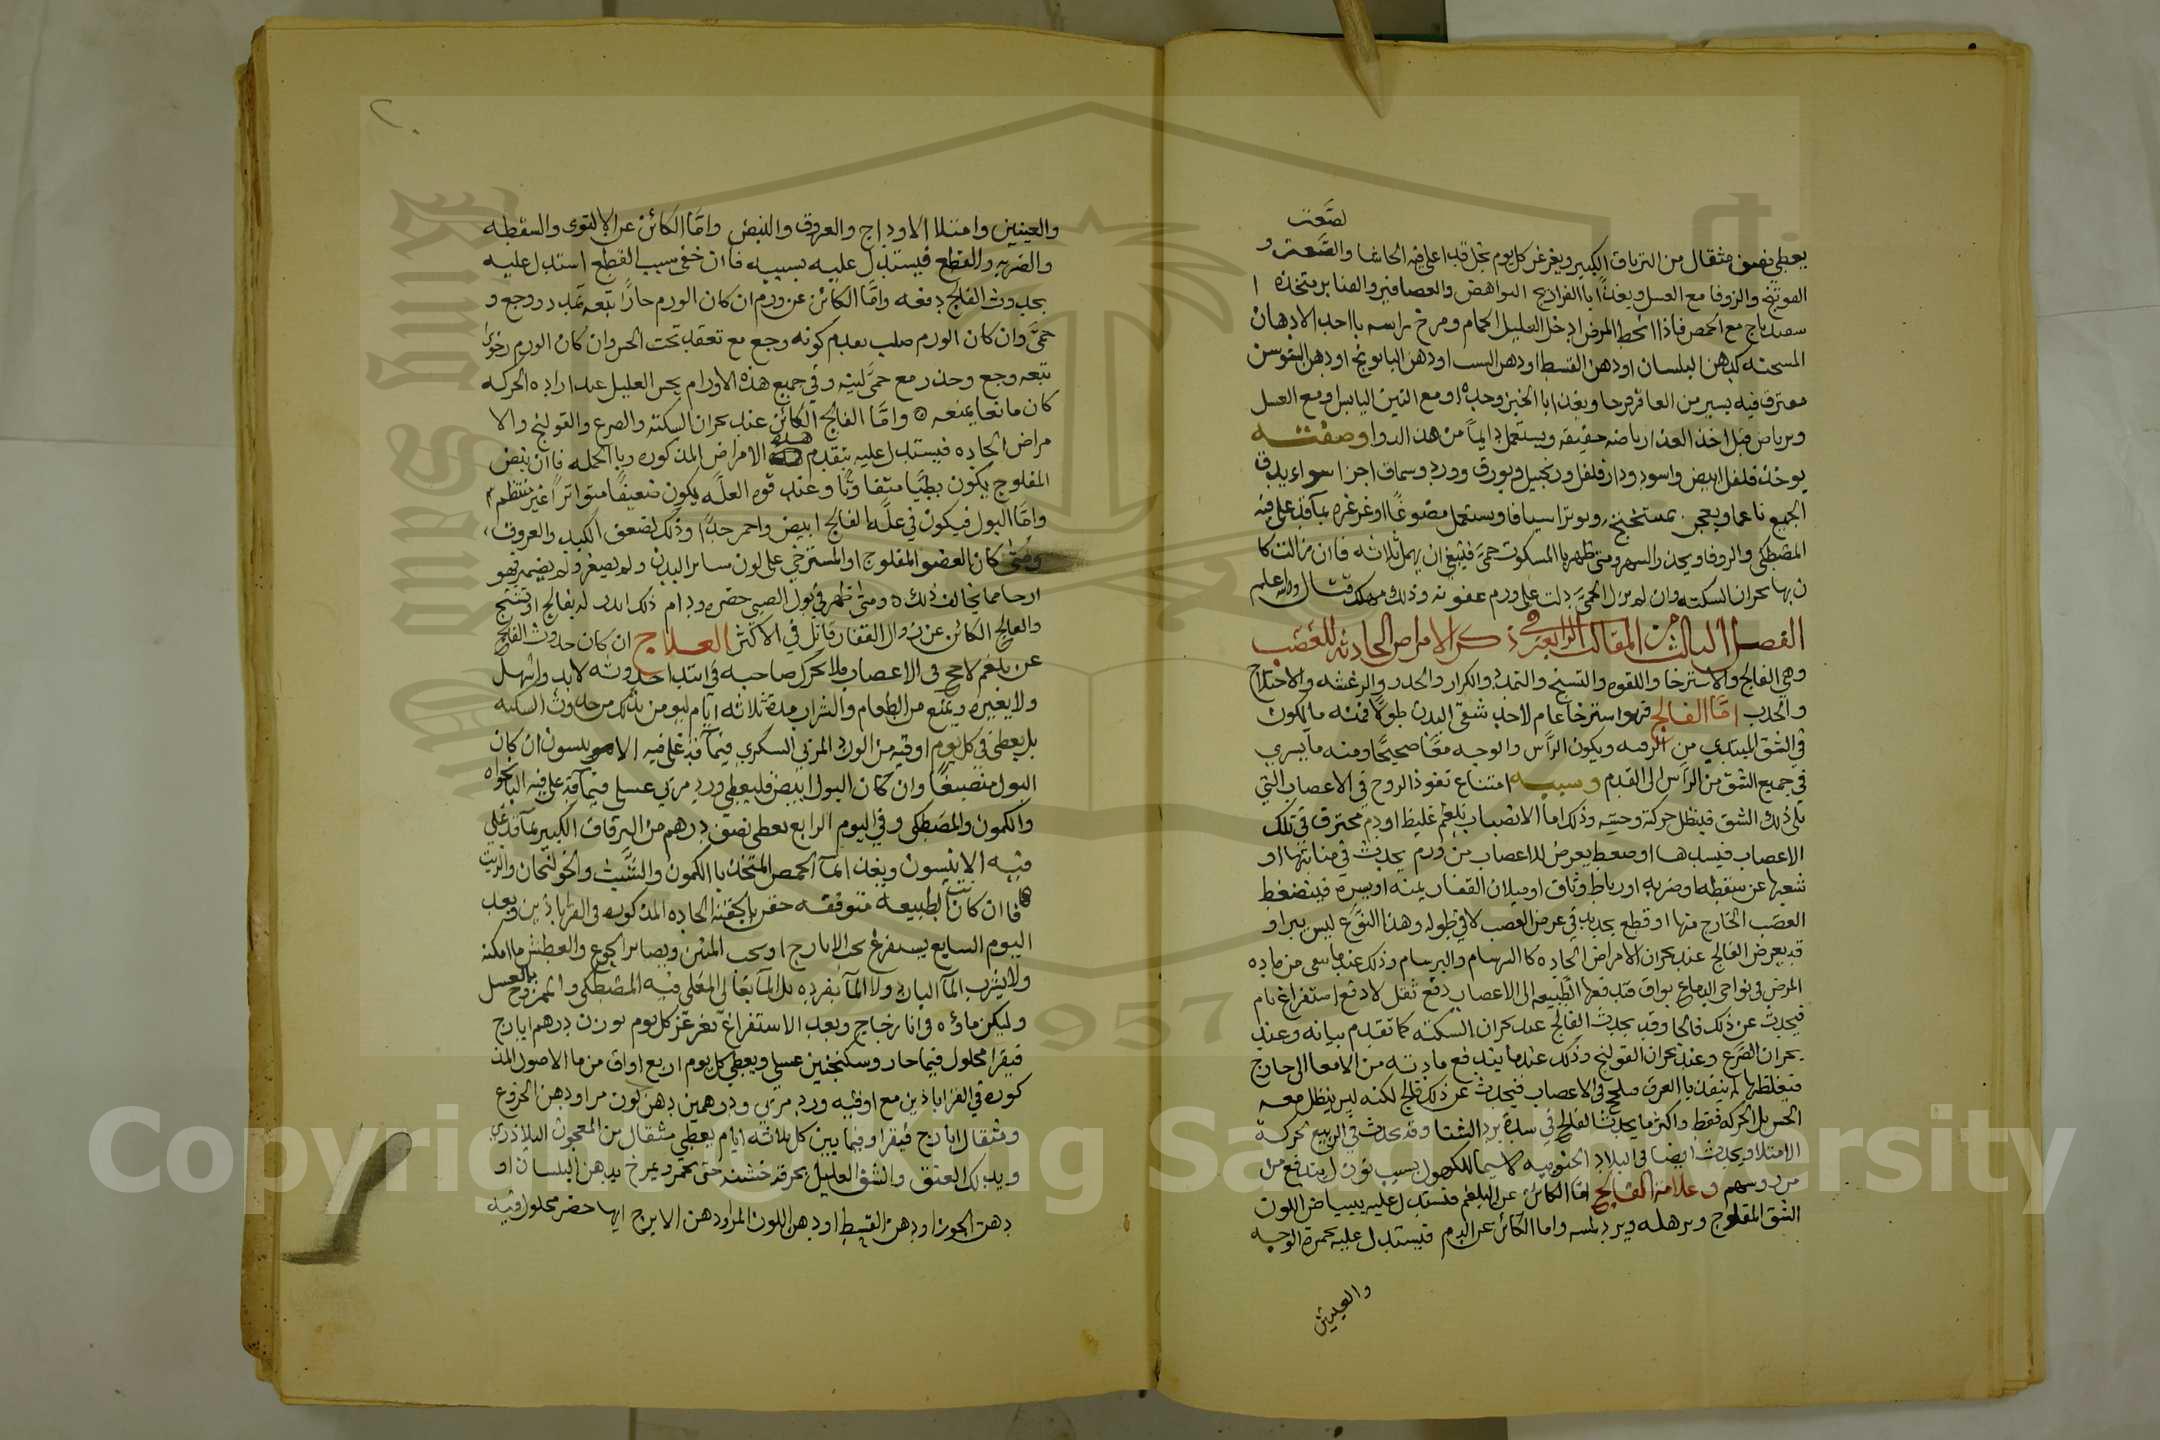 لصَّعتر
يعطي نصف مثقال من الترياق الكبير ويغرغر كل يوم بخل قد اغلي فيه الحاشا والصَّعتر و
الفوتنج والزوفا مع العسل ويغذا با الفراريج النواهض والعصافير والقنابر متخذه ا
سفيدباج مع الحمص فاذا انحط المرض ادخل العليل الحمام ومرخ براسه باحد الادهان
المسخنه كدهن البلسان او دهن القسط او دهن السب او دهن البابونج او دهن السوسن
مفترق فيه يسير من العاقرقرحا ويغذا با الخبز وحده او مع التين اليابس او مع العسل
ويرتاض قبل اخذ الغذا رياضه خفيفه ويستعمل دايماً من هذا الدوا وصفته
يوخذ فلفل ابيض واسود ودار فلفل وزنجبيل وبورق وورد وسماق اجزا سواء يدق
الجميع ناعما ويعجن بمستخنج ويوتر اسيافا ويستعمل مضوغًا او غرغره بما قد غلي فيه
المصطكي والزوفا ويحذر والسهر ومتى ظهر با المسكوت حمى فينبغي ان يمهل ثلاثه فان زالت كا
ن بها بحران السكته وان لم تزل الحمى دلت على ورم عفونه وذلك مهلك قتال والله اعلم
الفصل الثالث من المقالة الرابعة في ذكر الامراض الحادثه للعصب
وهي الفالج والاسترخا واللقوه والتشنج والتمدد والكزاز والخدر والرعشه والاختلاج
والحدب امّا الفالج فهو استرخا عام لاحد شقي البدن طولًا فمنه ما يكون
في الشق المبتدي من الرقبه ويكون الرأس والوجه معًا صحيحًا ومنه ما يسري
في جميع الشق من الرأس الى القدم وسببه امتناع نفوذ الروح في الاعصاب التي
تلي ذلك الشق فيبطل حركته وحسّه وذلك اما لانصباب بلغم غليظ او دم محترق في تلك
الاعصاب فيسدها او ضغط يعرض للاعصاب من ورم يحدث في منابتها او
شعبها عن سقطه او ضربه او رباط وثاق او ميلان الفقار يمنه او يسره فينضغط
العصب الخارج منها او قطع يحدث في عرض العصب لا في طوله وهذا النوع ليس يبرا و
قد يعرض الفالج عند بحران الامراض الحاده كا السرسام والبرسام وذلك عند ما سعى من ماده
المرض في نواحي الدماغ بواق فتدفعها الطبيعه الى الاعصاب دفع ثقل لا دفع استفراغ تام
فيحدث عن ذلك فالجا وقد يحدث الفالج عند بحران السكته كما تقدم بيانه وعند
بحران الصَّرع وعند بحران القولنج وذلك عند ما يندفع مادته من الامعا الى خارج
فتغلظها لم ينفذ با العرق فتلحج في الاعصاب فيحدث عن ذلك فالج لكنه ليس يبطل معه
الحس بل الحركه فقط واكثر ما يحدث الفالج في شدة برد الشتا وقد يحدث في الربيع لحركة
الامتلا ويحدث ايضا في البلاد الجنوبيه لا سيما للكهول بسبب نوازل يندفع من
من روسهم وعلامة الفالج امّا الكائن عن البلغم فيستدل عليه ببياض اللون
الشق المفلوج وترهله وبرد لمسه واما الكائن عن الدم فيستدل عليه بحمرة الوجه
والعينين
والعينين وامتلا الاوداج والعروق والنبض وامّا الكائن عن الالتوى والسقطه
والضربه والقطع فيستدل عليه بسببه فاان خفي سبب القطع استدل عليه
بحدوث الفالج دفعه وامّا الكائن عن ورم ان كان الورم حارًا تبعه تمدد ووجع و
حمىَّ وان كان الورم صلب تقدم كونه وجع مع تعقد تحت الحس وان كان الورم رخوًا
تبعه وجع وخدر مع حمىَّ لينه وفي جميع هذه الاورام يحس العليل عند ارادة الحركه
كان مانعا يمنعه وامَّا الفالج الكائن عند بحران السكته والصرع والقولنج والا
مراض الحاده فيستدل عليه بتقدم هذه الامراض المذكوره وبا الجمله فاان نبض
المفلوج يكون بطيًا متفاوتًا وعند قوه العلَّه يكون ضعيفًا متواترًا غير منتظم
وامَّا البول فيكون في علَّه الفالج ابيض واحمر جدًا وذلك لضعف الكبد والعروق
ومتى كان العضو المفلوج او المسترخي على لون ساير البدن ولم يصغر ولم يضمر فهو
ارجا مما يخالف ذلك ومتى ظهر في بول الصبي خضره ودام ذلك انذر له بفالج او تشنج
والفالج الكائن عن زوال الفقار قاتل في الاكثر العلاج ان كان حدوث الفالج
عن بلغم لاحج في الاعصاب فلا تحرك صاحبه في ابتدا حدوثه لا بدوا مسهل
ولا بغيره ويمنع من الطعام والشراب مدة ثلاثه ايام ليومن بذلك من حدوث السكته
بل يعطى في كل يوم اوقيه من الورد المربي السكري فيما قد غلي فيه الانيسون ان كان
البول منصبغًا وان كان البول ابيض فليعطي ورد مربي عسلي فيما قد غلي فيه النانخواه
والكمون والمصطكي وفي اليوم الرابع يعطى نصف درهم من الترياق الكبير بما قد غلي
فيه الانيسون ويغذا بماء الحمص المتخذ با الكمون والشَّبث والخولنجان والزيت
فاان كانت الطبيعه متوقفه حقن بالحقنه الحاده المذكوره في القراباذين وبعد
اليوم السابع يستفرغ بحب الايارج او بحب المنتن ويصابر الجوع والعطش ما امكنه
ولا يشرب المآ البارد ولا المآ بمفرده بل المآ المغلي فيه المصطكي والممزوج بالعسل
وليكن ماؤه في انا زجاج وبعد الاستفراغ تغرغر كل يوم بوزن درهم ايارج
فيقرا محلول فيما حار وسكنجبين عسلي ويعطي كل يوم اربع اواق من ما الاصول المذ
كوره في القراباذين مع اوقيه ورد مربي ودرهمين دهن لوز مر او دهن الخروع
ومثقال ايارج فيقرا وفيما بين كل ثلاثه ايام يعطي مثقال من المعجون البلاذري
ويدلك العنق والشق العليل بخرقه خشنه حتى يحمر ويمرخ بدهن البلسان او
دهن الجوز او دهن القسط او دهن اللوز المر او دهن الايرج ايها حضر محلول فيه